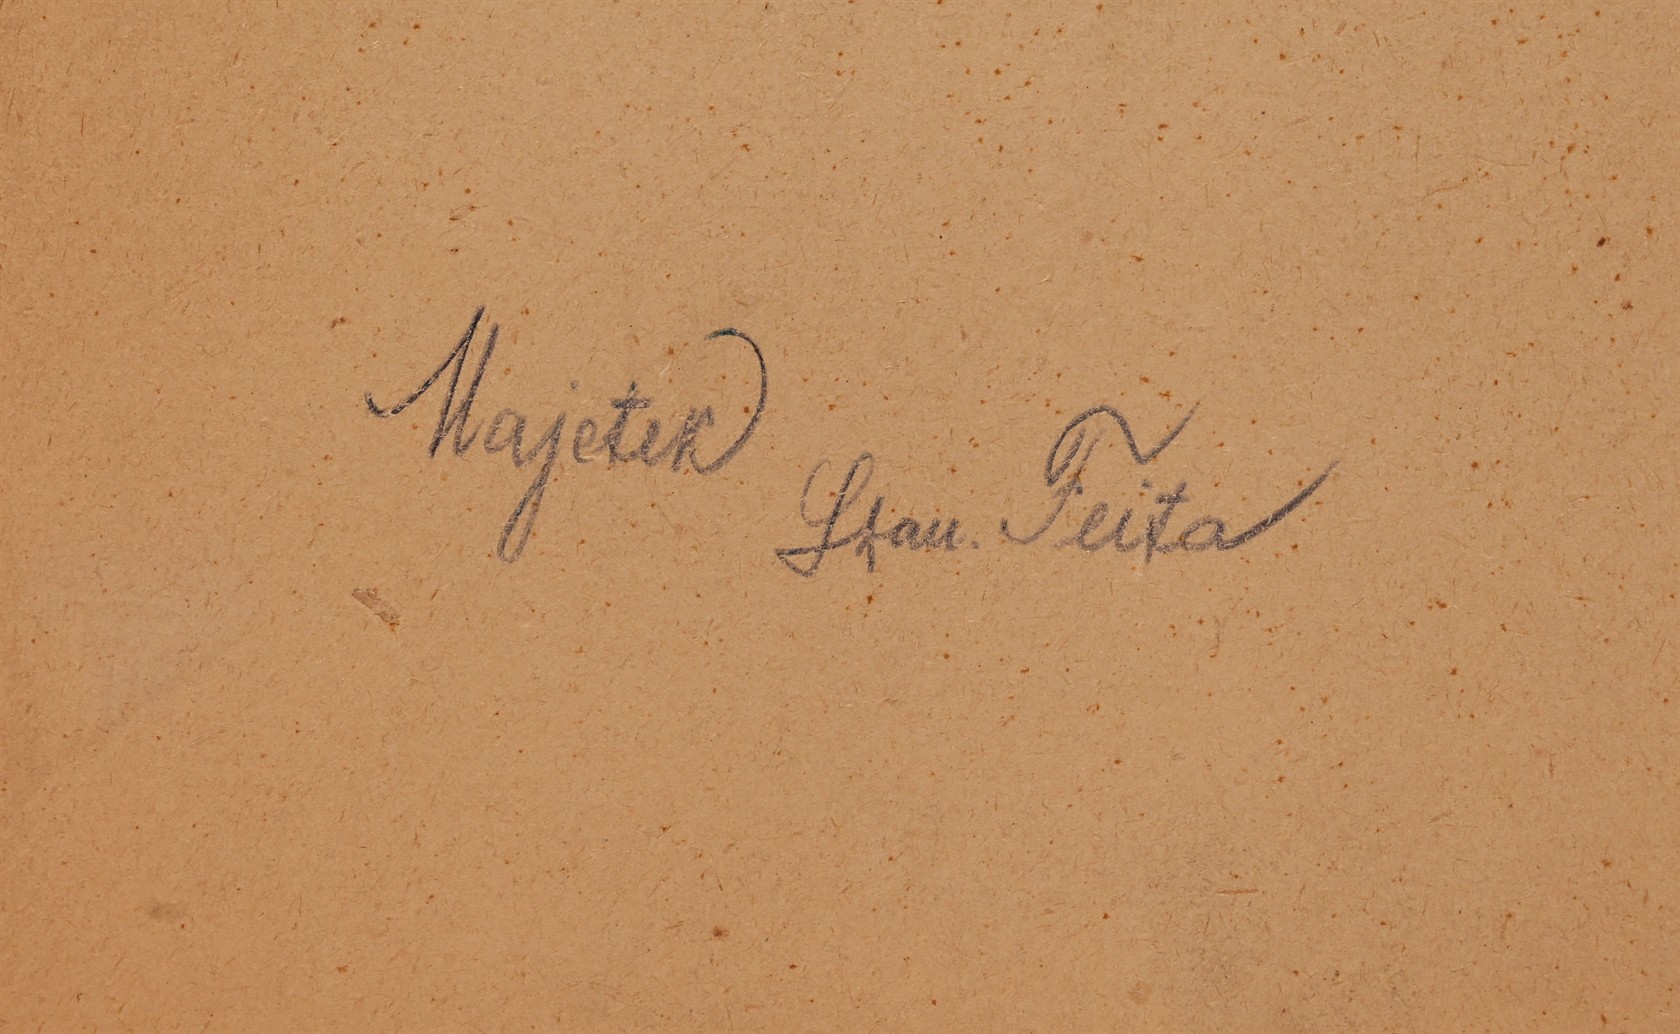 Majetek
Stan. Feita